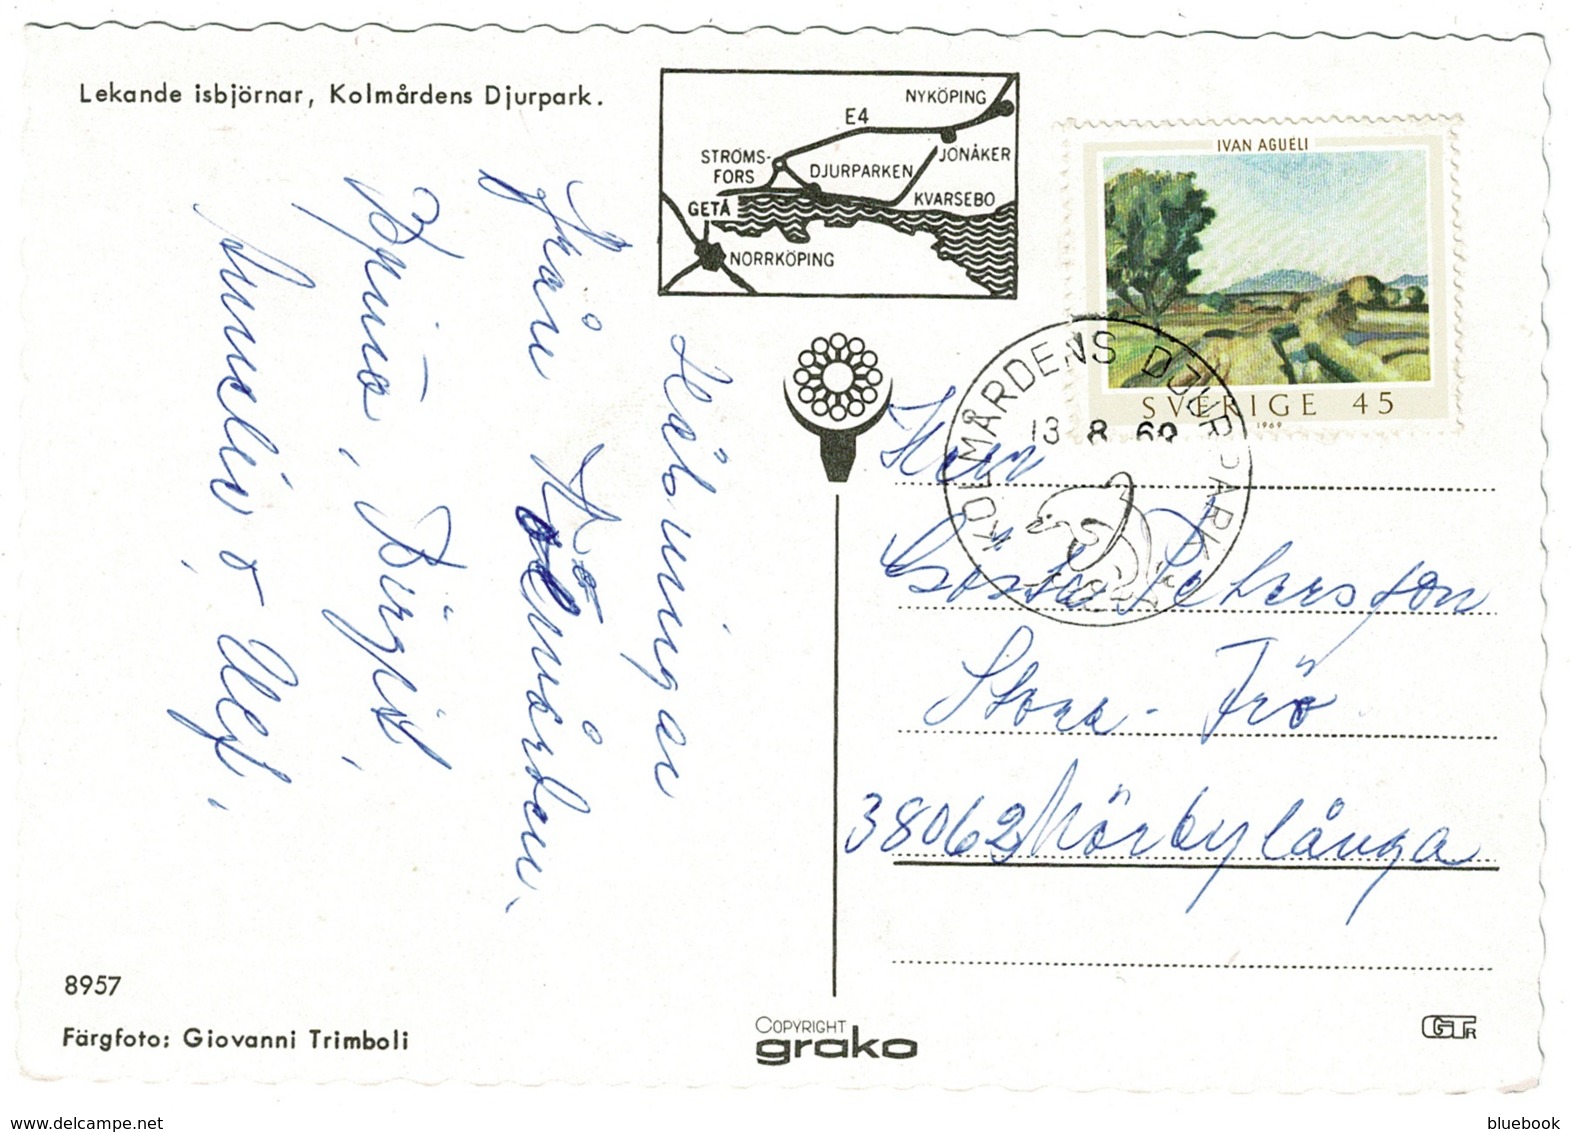 Lekande isbjörnar, Kolmårdens Djurpark.
NYKÖPING
E4
JÖNÅKER
STRÖMS-
FORS
DJURPARKEN
KVARSEBO
GETÅ
NORRKÖPING
IVAN AGUÉLI
SVERIGE 45
1969
KOLMÅRDENS DJURPARK
13 8 69
Hälsningar
från Kolmården,
Birgit,
o Ulf,
Herr
Gösta Petersson
Stora-Frö
38062 Mörbylånga
8957
Färgfoto: Giovanni Trimboli
COPYRIGHT
grako
www.delcampe.net
bluebook